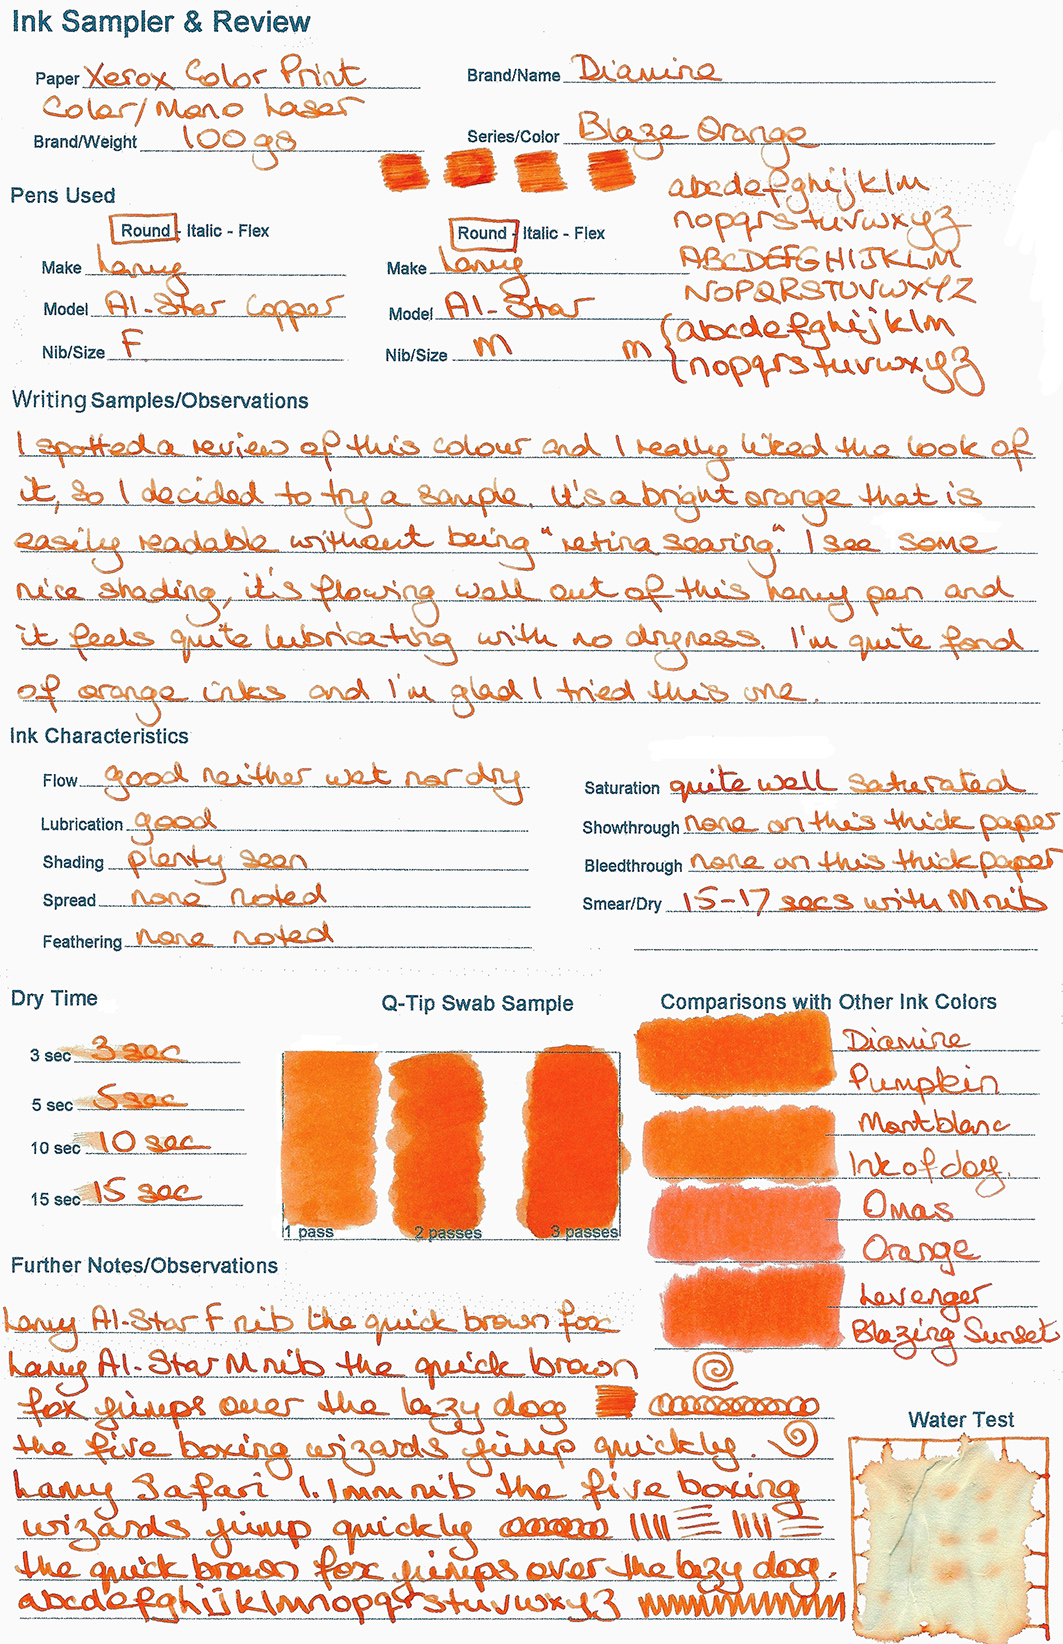 Ink Sampler & Review
Paper Xerox Color Print
Color/Mono Laser
Brand/Weight 100 gs
Brand/Name Diamine
Series/Color Blaze Orange
Pens Used
Round - Italic - Flex
Make Lamy
Model Al-Star Copper
Nib/Size F
Round - Italic - Flex
Make Lamy
Model Al-Star
Nib/Size M
abcdefghijklm
nopqrstuvwxyz
ABCDEFGHIJKLM
NOPQRSTUVWXYZ
M { abcdefghijklm
nopqrstuvwxyz
Writing Samples/Observations
I spotted a review of this colour and I really liked the look of
it, so I decided to try a sample. It's a bright orange that is
easily readable without being "retina searing." I see some
nice shading, it's flowing well out of this Lamy pen and
it feels quite lubricating with no dryness. I'm quite fond
of orange inks and I'm glad I tried this one.
Ink Characteristics
Flow good neither wet nor dry
Lubrication good
Shading plenty seen
Spread none noted
Feathering none noted
Saturation quite well saturated
Showthrough none on this thick paper
Bleedthrough none on this thick paper
Smear/Dry 15-17 secs with M nib
Dry Time
3 sec 3 sec
5 sec 5 sec
10 sec 10 sec
15 sec 15 sec
Q-Tip Swab Sample
1 pass 2 passes 3 passes
Comparisons with Other Ink Colors
Diamine
Pumpkin
Montblanc
Ink of Joy.
Omas
Orange
Levenger
Blazing Sunset
Further Notes/Observations
Lamy Al-Star F nib the quick brown fox
Lamy Al-Star M nib the quick brown
fox jumps over the lazy dog
the five boxing wizards jump quickly.
Lamy Safari 1.1mm nib the five boxing
wizards jump quickly
the quick brown fox jumps over the lazy dog.
abcdefghijklmnopqrstuvwxyz
Water Test